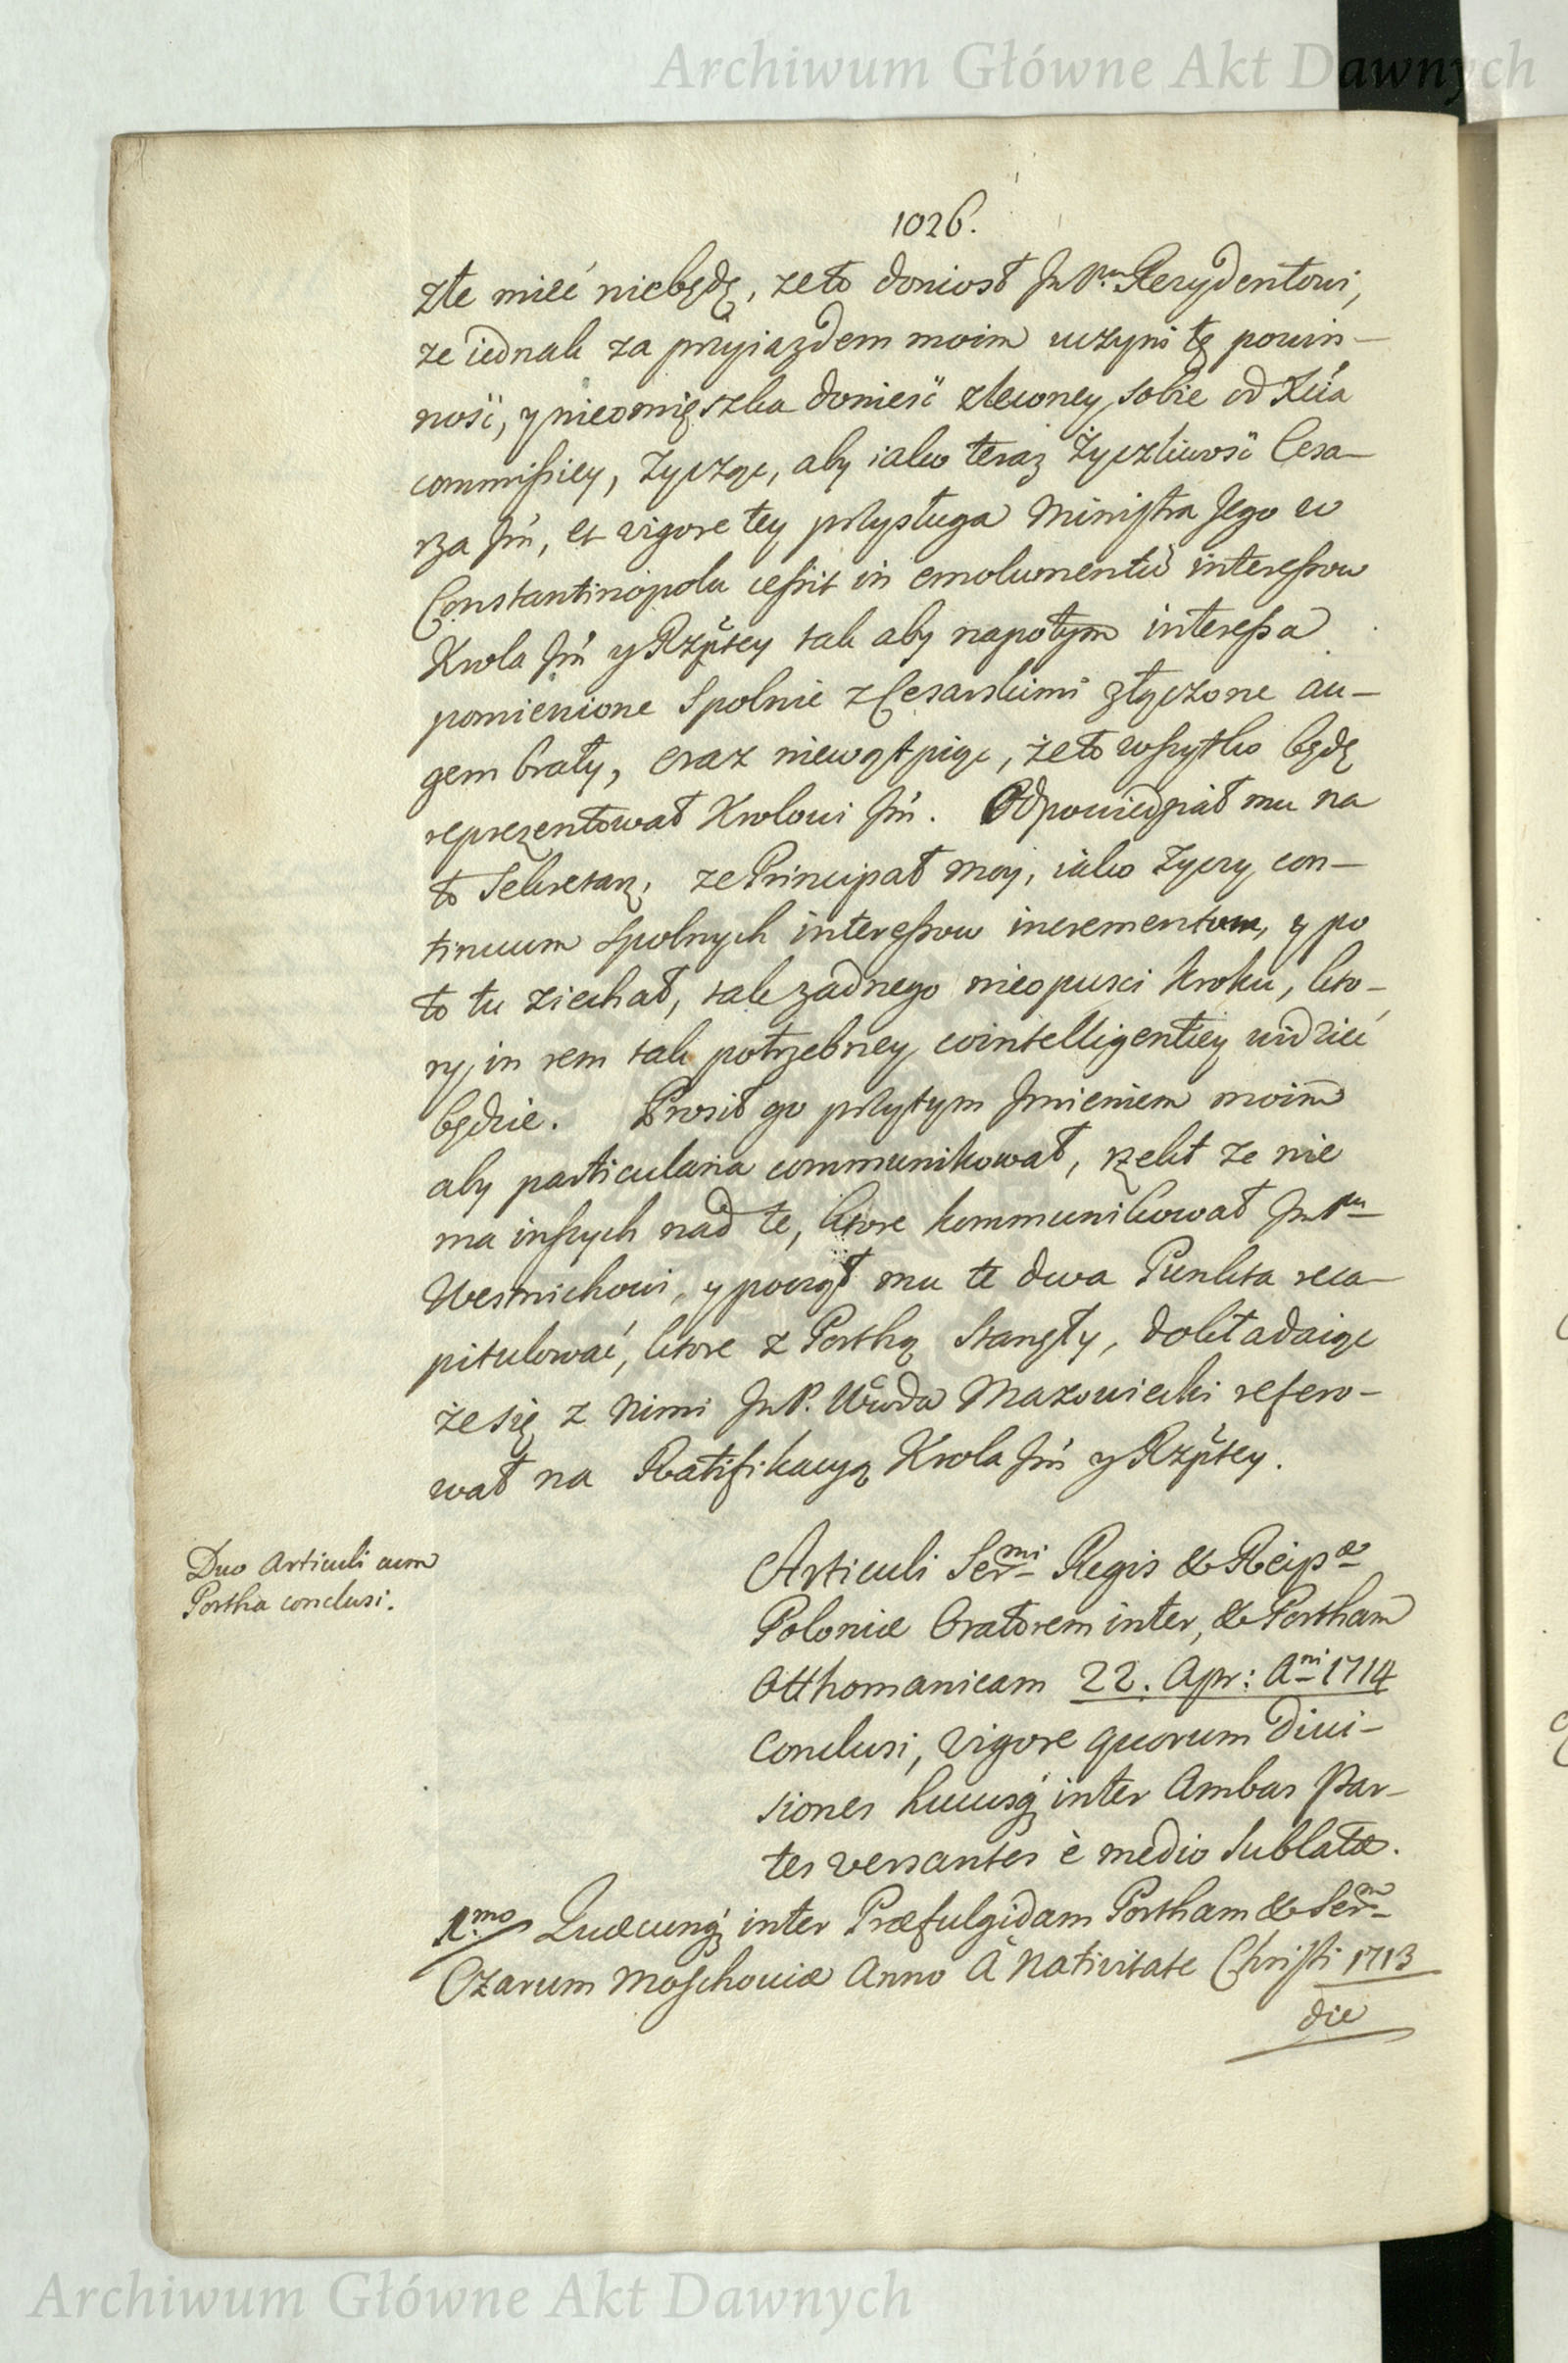 Archiwum Główne Akt Dawnych
1026.
złe mieć niebędę, ze to doniosł Jm Pnu Rezydentowi,
ze iednak za przyiazdem moim uczyni tę powin-
ność, y nieomięszka donieść zleconey sobie od Xcia
commissiey, życząc, aby iako teraz Życzliwość Cesa-
rza Jm, et vigore tey przysługa Ministra Jego w
Constantinopolu cessit in emolumentū interessow
Krola Jm y Rzptey tak aby napotym interessa
pomienione Spolnie z Cesarskimi złączone au-
gem brały, oraz niewątpiąc, że to wszytko będę
reprezentował Krolowi Jm. Odpowiedział mu na
to Sekretarz, ze Principał moy, iako życzy con-
tinuum spolnych interessow incrementum, y po
to tu ziechał, tak zadnego nieopusci kroku, kto-
ry in rem tak potrzebney cointelligentiey widzieć
będzie. Prosił go przytym Jmieniem moim
aby particularia communikował, rzekł ze nie
ma inszych nad te, ktore kommunikował Jm Pnu
Westnichowi, y począł mu te dwa Punkta reca-
pitulować, ktore z Porthą stanęły, dokładaiąc
że się z nimi Jm P. Wwda Mazowiecki refero-
wał na Ratifikacyą Krola Jm y Rzptey.
Duo Articuli cum
Portha conclusi.
Articuli Sermi Regis & Reipæ
Poloniæ Oratorem inter, & Portham
Otthomanicam 22. Apr: Ani 1714
Conclusi, vigore quorum divi-
siones hucusq inter Ambas Par-
tes versantes è medio sublatæ.
1.mo Quæcunq inter Præfulgidam Portham & Serm
Czarum Moschoviæ Anno À Nativitate Christi 1713
die
Archiwum Główne Akt Dawnych